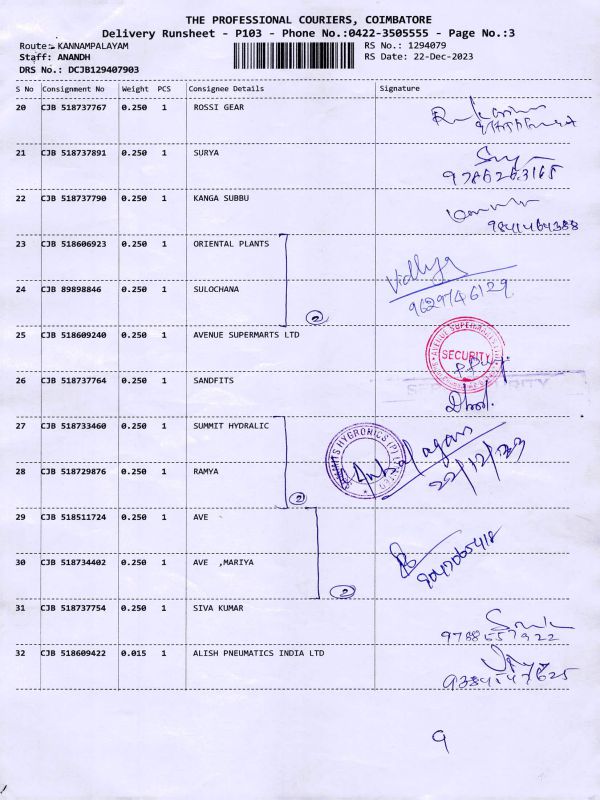 THE PROFESSIONAL COURIERS, COIMBATORE
Delivery Runsheet - P103 - Phone No.:0422-3505555 - Page No.:3
Route:- KANNAMPALAYAM RS No.: 1294079
Staff: ANANDH RS Date: 22-Dec-2023
DRS No.: DCJB129407903
S No Consignment No Weight PCS Consignee Details Signature
20 CJB 518737767 0.250 1 ROSSI GEAR
21 CJB 518737891 0.250 1 SURYA
9786263165
22 CJB 518737790 0.250 1 KANGA SUBBU
9841464388
23 CJB 518606923 0.250 1 ORIENTAL PLANTS
Vidhya
24 CJB 89898846 0.250 1 SULOCHANA
9629746129
2
25 CJB 518609240 0.250 1 AVENUE SUPERMARTS LTD
SECURITY
26 CJB 518737764 0.250 1 SANDFITS
27 CJB 518733460 0.250 1 SUMMIT HYDRALIC
28 CJB 518729876 0.250 1 RAMYA
22/12/23
2
29 CJB 518511724 0.250 1 AVE
30 CJB 518734402 0.250 1 AVE ,MARIYA
9047065418
2
31 CJB 518737754 0.250 1 SIVA KUMAR
9788557922
32 CJB 518609422 0.015 1 ALISH PNEUMATICS INDIA LTD
9384147625
9